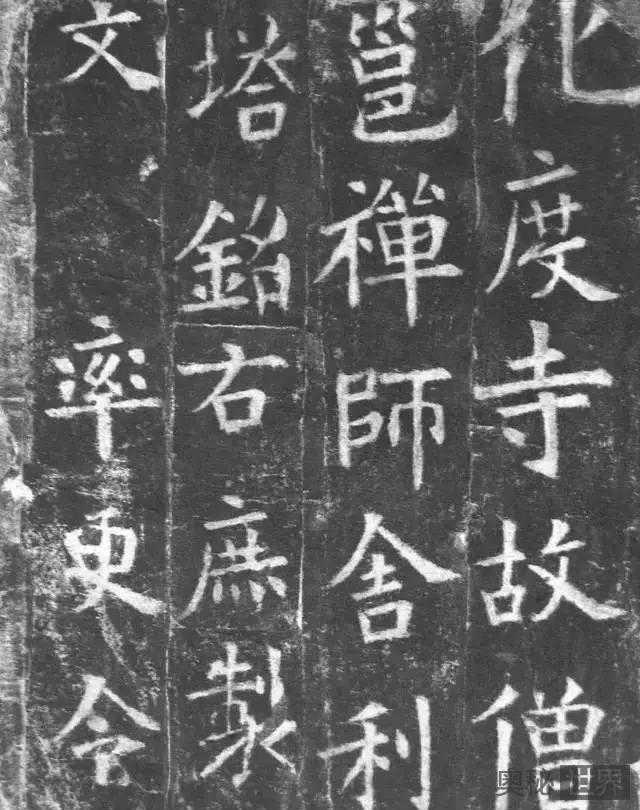 化度寺故僧
邕禪師舍利
塔銘右庶製
文 率更令
奥秘世界